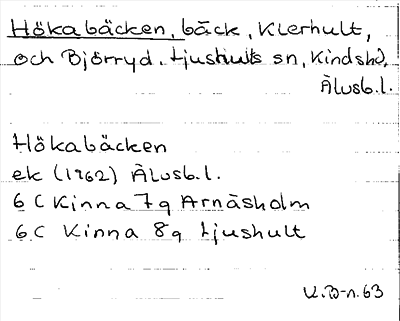 Hökabäcken, bäck, Klerhult,
och Björryd. Ljushults sn, Kinds hd.
Älvsb.l.
Hökabäcken
ek (1962) Älvsb.l.
6 C Kinna 7 g Arnäsholm
6 C Kinna 8 g Ljushult
K.B-n.63